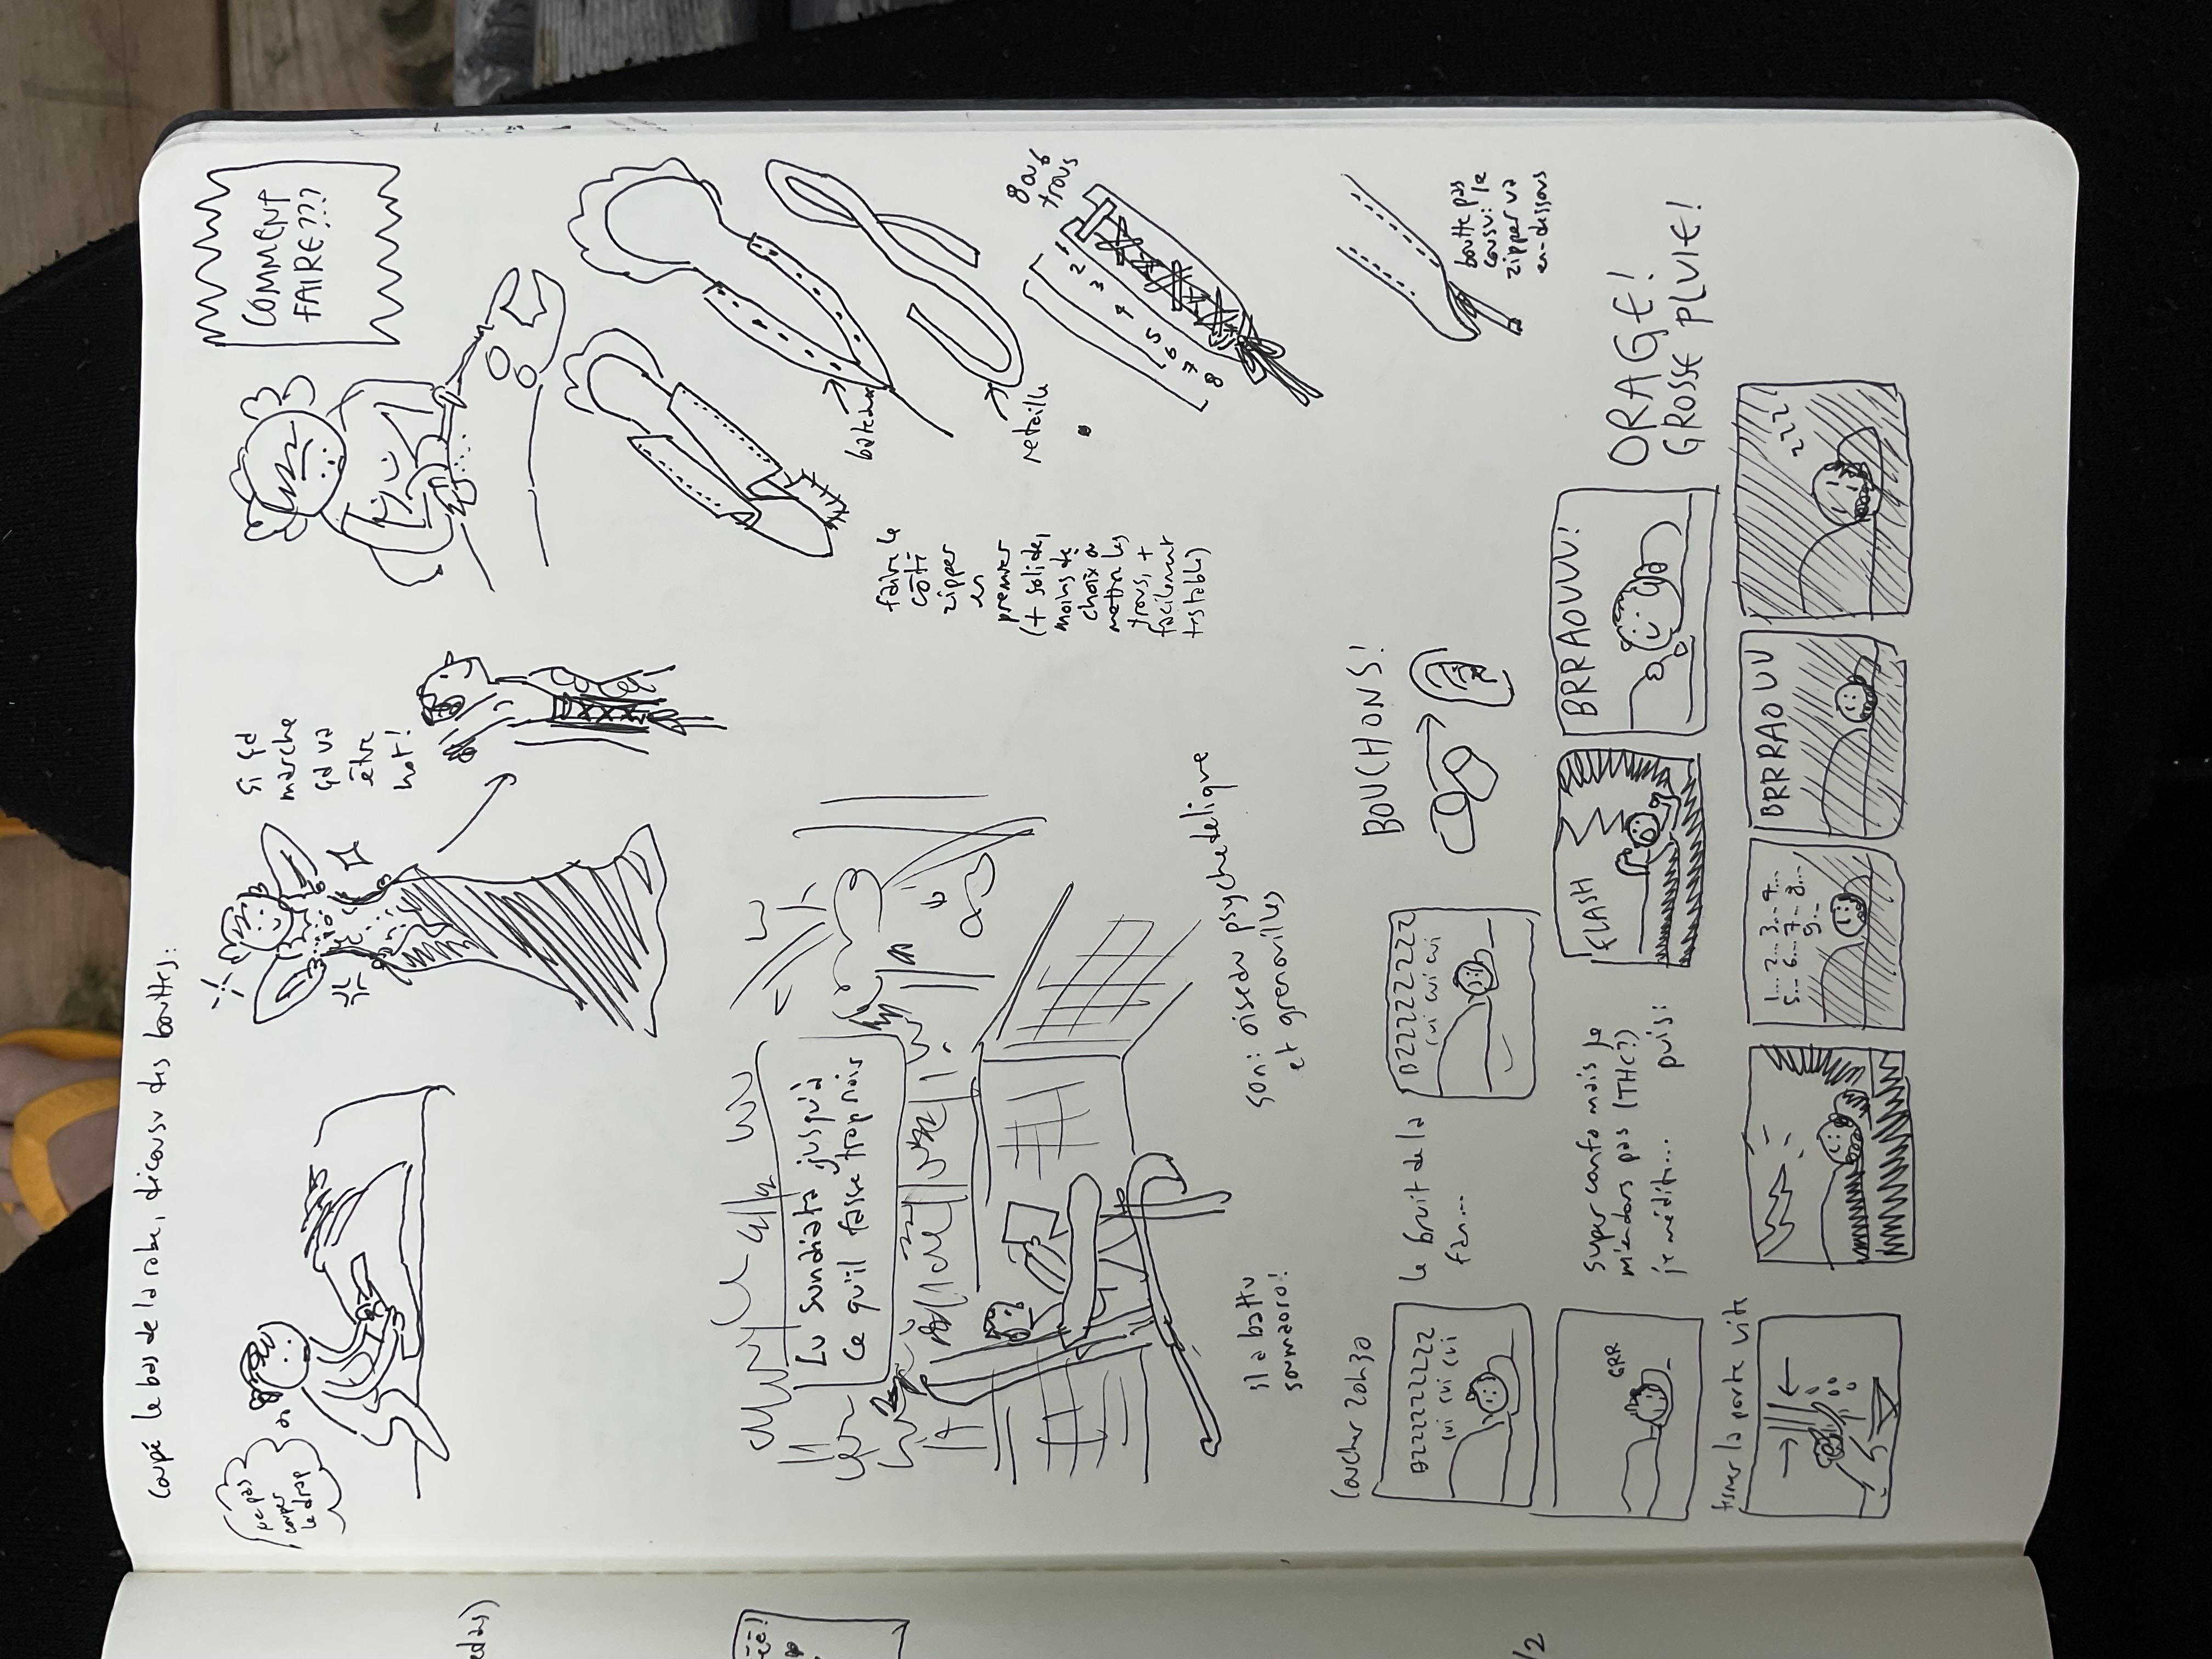 coupé le bas de la robe, décousu des bouttes:
pe pas
couper
le drap
si ça
marche
ça va
être
hot!
COMMENT
FAIRE???
faire le
côté
zipper
en
premier
(+ solide,
moins de
choix où
mettre les
trous, +
facilement
testable)
retaille
8 ou 6
trous
1
2
3
4
5
6
7
8
boutte pas
cousu: le
zipper va
en-dessous
Lu Sundiata jusqu'à
ce qu'il fasse trop noir
son: oiseau psychédélique
et grenouilles
il a battu
soumaoro!
coucher 20h30
BZZZZZZZZZZ
cui cui cui
le bruit de la
fan...
BZZZZZZZZZ
cui cui cui
BOUCHONS!
GRR
super confo mais je
m'endors pas (THC?)
je médite... puis:
FLASH
BRRAOUUU!
ORAGE!
GROSSE PLUIE!
fermer la porte vite
1... 2... 3... 4...
5... 6... 7... 8...
9...
BRRRAOUU
zzz
edas)
/2